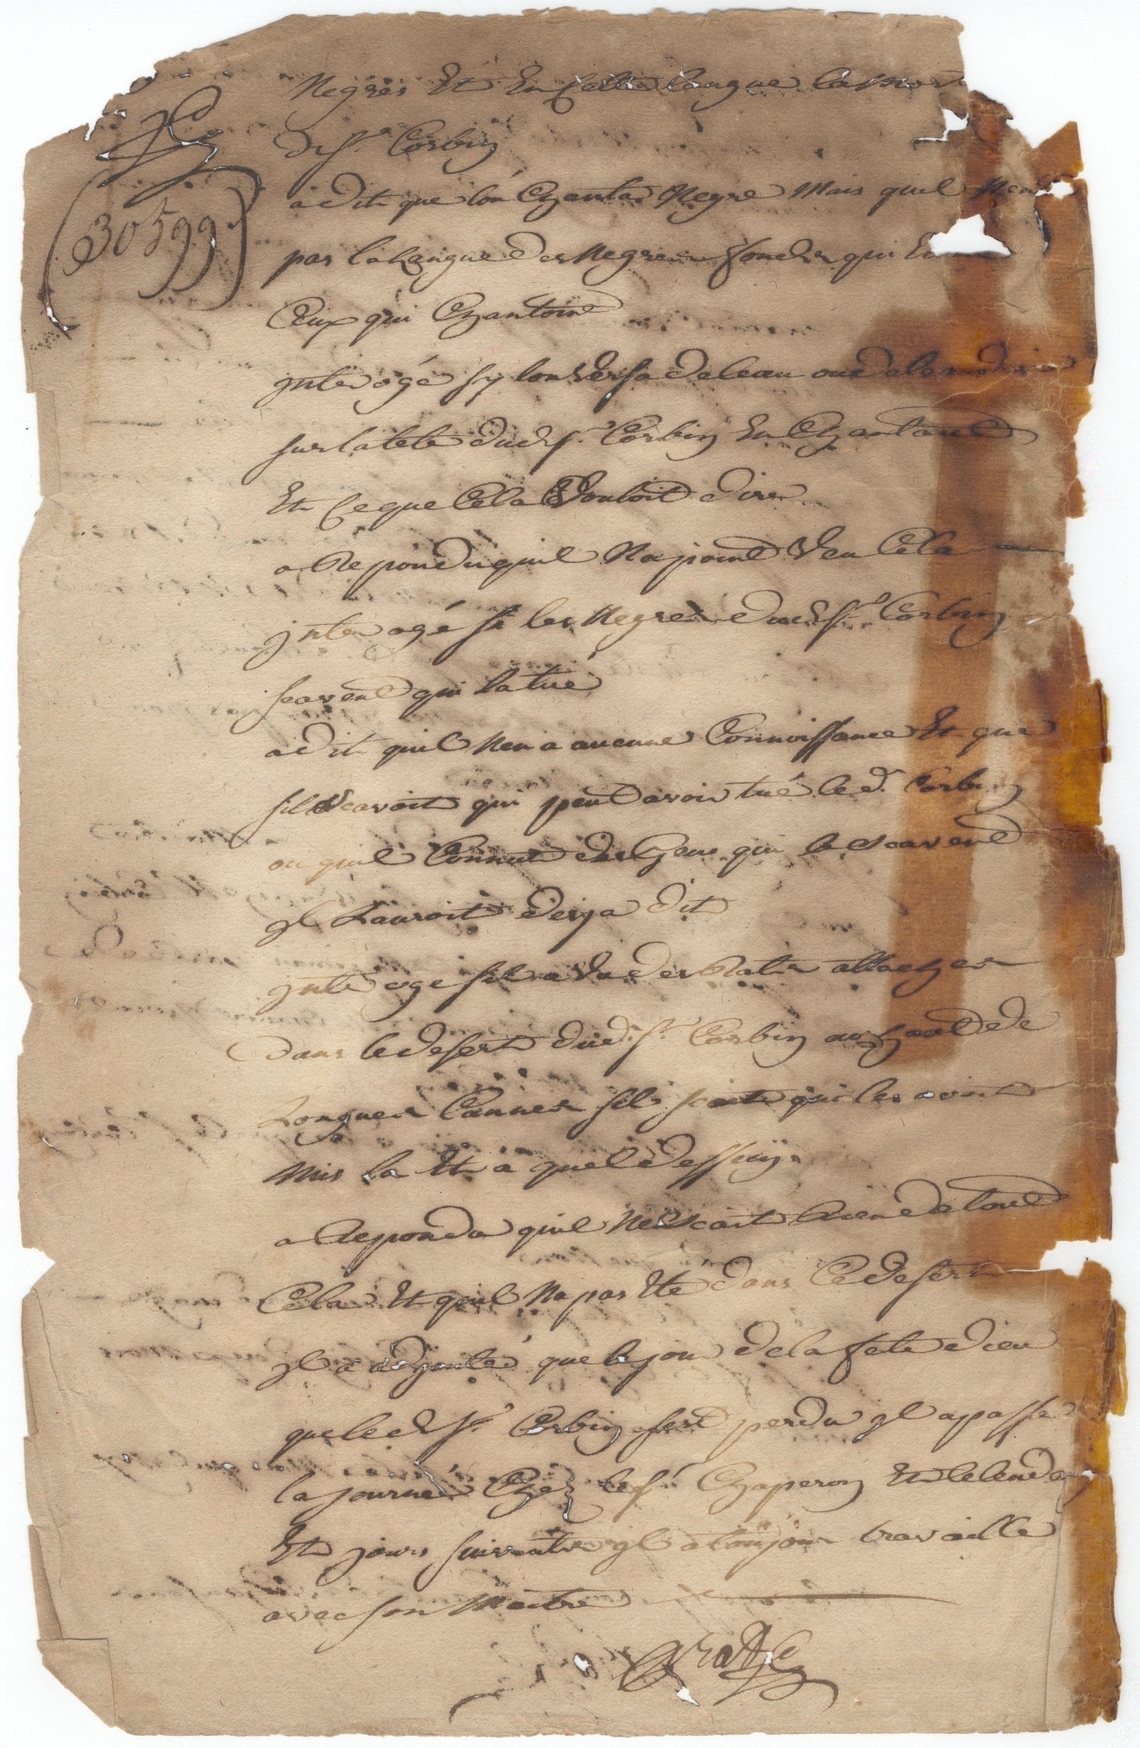 Negres Et En Cette langue la mor
du Sr. Corbin
a dit que lon Chanta Negre Mais quil Nen
par la Langue des Negres fonds qui En
Ceux qui Chantoint
(30599)
jnterogé sy lon versa de leau ou de
sur la tete dud Sr. Corbin En Chantant
Et Ce que Cela Vouloit dire
a Repondu quil Na point Veu Cela
jnterogé si les Negres dud Sr. Corbin
scavent qui la tué
a dit quil Nen a aucune Connoissance Et que
sil Scavoit qui peut avoir tué le d. Corbin
ou quil Connut des Gens qui le scavent
jl Lauroit deija dit
jnterogé sil a Vu des attachez
dans le desert dud. Sr. Corbin au haut de
Longues Cannes sil scait qui les avoit
Mis la Et a quel dessein
a Repondu quil Ne Scait Rien de tout
Cela Et quil Na pas Eté dans Ce desert
jl a adjouté que le jour de la fete dieu
que le d Sr. Corbin sest perdu jl a passé
la journé Chez le Sr. Chaperon Et le lende
Et jours suivants jl a toujour travaillé
avec son Maitre